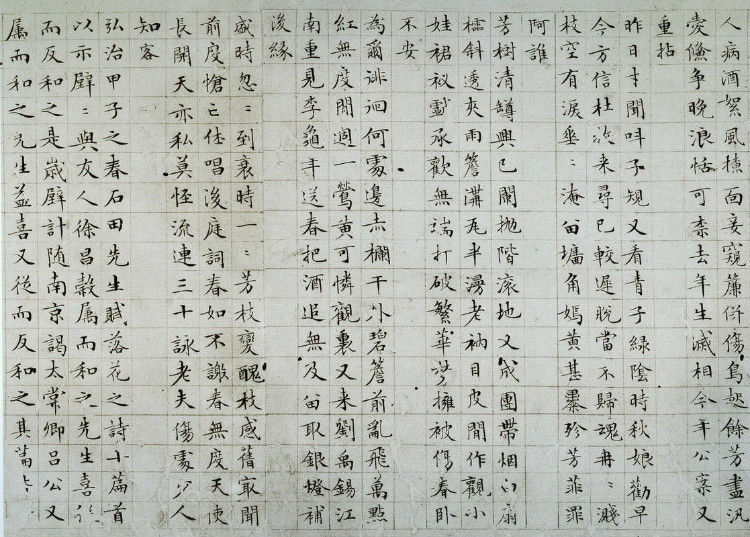 人病酒絮風撩面妾窺簾傷鳥起餘芳盡汎
愛儵爭晚浪恬可柰去年生滅相今年公案又
重拈
昨日才聞呌子規又看青子綠陰時秋娘勸早
今方信杜牧来尋已較遲脫當不歸魂冉〻濺
枝空有淚垂〻淹留墻角嫣黃甚殄芳菲罪
阿誰
芳樹清罇興已闌抛階滾地又成團帶烟白扇
斜透夾雨簷溝瓦半漫老衲目皮閒作觀小
娃裙衩戲承歡無端打破繁華夢擁被傷春卧
不安
為爾徘徊何處邊赤欄干外碧簷前亂飛萬點
紅無度閒遇一鶯黃可憐觀裏又来劉禹錫江
南重見李龜年送春把酒追無及留取銀燈補
後緣
盛時忽〻到衰時一〻芳枝變醜枝感舊最聞
前度愴亡休唱後庭詞春如不謝春無度天使
長開天亦私莫怪流連三十詠老夫傷處少人
知客
弘治甲子之春石田先生賦落花之詩十篇首
以示壁〻與友人徐昌榖属而和之先生喜從
而反和之是歲壁計随南京謁太常卿呂公又
属而和之先生益喜又從而反和之其篇